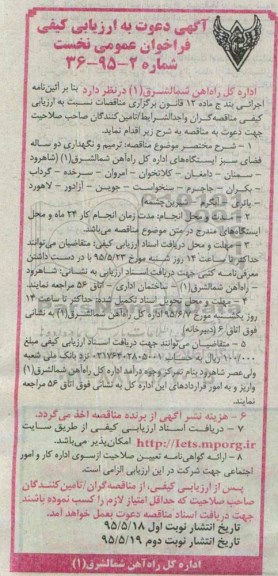 آگهی دعوت به ارزیابی کیفی
فراخوان عمومی نخست
شماره ۲-۹۵-۳۶
اداره کل راه‌آهن شمالشرق(۱) در نظر دارد بنا بر آئین‌نامه
اجرائی بند ج ماده ۱۲ قانون برگزاری مناقصات نسبت به ارزیابی
کیفی مناقصه‌گران واجدالشرایط/تامین‌کنندگان صاحب صلاحیت
جهت دعوت به مناقصه به شرح زیر اقدام نماید.
۱ – شرح مختصر موضوع مناقصه: ترمیم و نگهداری دو ساله
فضای سبز ایستگاه‌های اداره کل راه‌آهن شمالشرق(۱) (شاهرود
– سمنان – دامغان – کلاتخوان – امروان – سرخده – گرداب
– بکران – جاجرم – سنخواست – جوین – آزادور – لاهورد
– یاتری – ابکرم –
۲ – مدت و محل انجام: مدت زمان انجام کار ۲۴ ماه و محل
ایستگاه‌های مندرج در متن موضوع مناقصه می‌باشد.
۳ – مهلت و محل دریافت اسناد ارزیابی کیفی: متقاضیان می‌توانند
حداکثر تا ساعت ۱۴ روز شنبه مورخ ۹۵/۵/۲۳ با در دست داشتن
معرفی‌نامه کتبی جهت دریافت اسناد ارزیابی به نشانی: شاهرود
– راه‌آهن شمالشرق(۱) – ساختمان اداری – اتاق ۵۶ مراجعه نمایند.
۴ – مهلت و محل تحویل اسناد تکمیل شده: حداکثر تا ساعت ۱۴
روز یکشنبه مورخ ۹۵/۶/۷ اداره کل راه‌آهن شمالشرق(۱) به نشانی
فوق اتاق ۶ (دبیرخانه)
۵ – متقاضیان می‌توانند جهت دریافت اسناد ارزیابی کیفی مبلغ
۱۰۰/۰۰۰ ریال به حساب ۲۱۷۶۴۰۲۸۰۵۰۰۱ نزد بانک ملی شعبه
ولی‌عصر شاهرود بنام تمرکز وجوه درآمد اداره کل راه‌آهن شمالشرق(۱)
واریز و به امور قراردادهای این اداره کل به نشانی فوق اتاق ۵۶ مراجعه
نمایند.
۶ – هزینه نشر آگهی از برنده مناقصه اخذ می‌گردد.
۷ – دریافت اسناد ارزیابی کیفی از طریق سایت
http://iets.mporg.ir امکان‌پذیر می‌باشد.
۸ – ارائه گواهی‌نامه تعیین صلاحیت ازسوی اداره کار و امور
اجتماعی جهت شرکت در این ارزیابی الزامی است.
پس از ارزیابی کیفی، از مناقصه‌گران/تامین‌کنندگان
صاحب صلاحیت که حداقل امتیاز لازم را کسب نموده باشند
جهت دریافت اسناد مناقصه دعوت بعمل خواهد آمد.
تاریخ انتشار نوبت اول ۹۵/۵/۱۸
تاریخ انتشار نوبت دوم ۹۵/۵/۱۹
اداره کل راه‌آهن شمالشرق(۱)